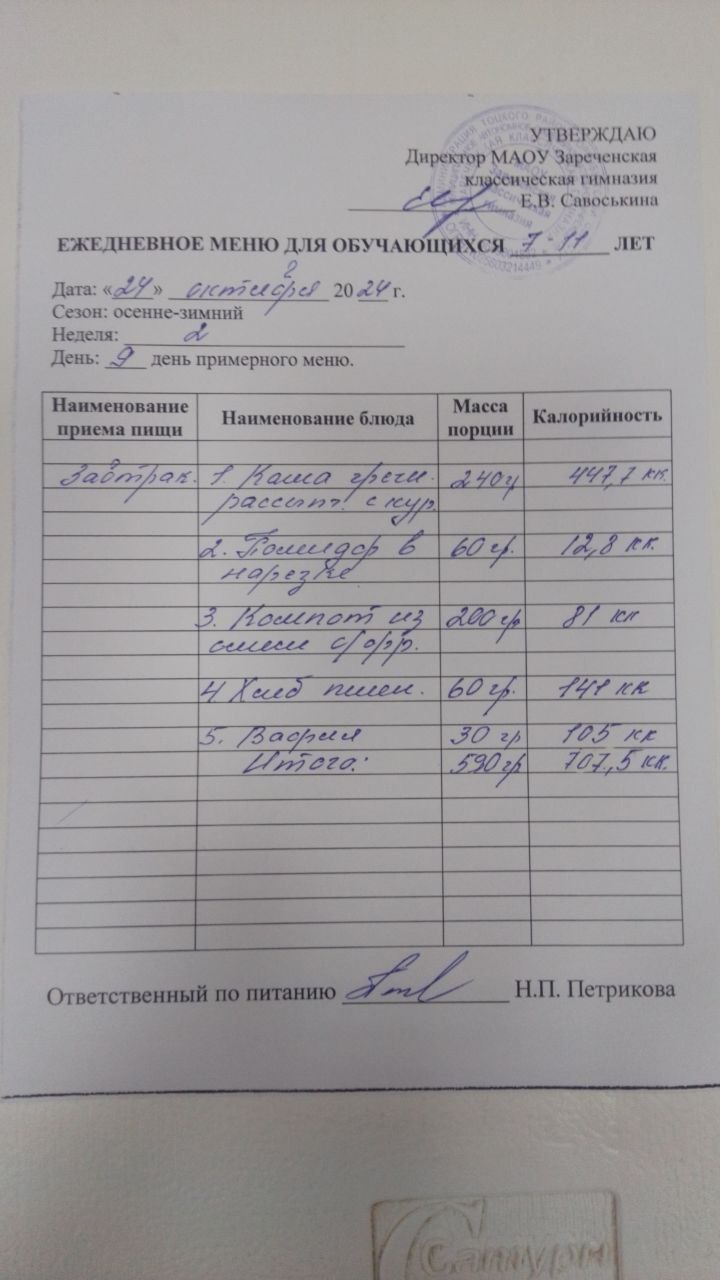 УТВЕРЖДАЮ
Директор МАОУ Зареченская
классическая гимназия
Е.В. Савоськина
ЕЖЕДНЕВНОЕ МЕНЮ ДЛЯ ОБУЧАЮЩИХСЯ 7-11 ЛЕТ
Дата: «24» октября 2024 г.
Сезон: осенне-зимний
Неделя: 2
День: 9 день примерного меню.
Наименование приема пищи Наименование блюда Масса порции Калорийность
Завтрак. 1. Каша гречн. 240г 447,7 кк.
рассып. с кур.
2. Помидор в 60 гр. 12,8 кк.
нарезке
3. Компот из 200 гр 81 кк
смеси с/фр.
4 Хлеб пшен. 60 гр. 141 кк
5. Вафля 30 гр 105 кк
Итого: 590 гр 707,5 кк.
Ответственный по питанию Н.П. Петрикова
Сатурн